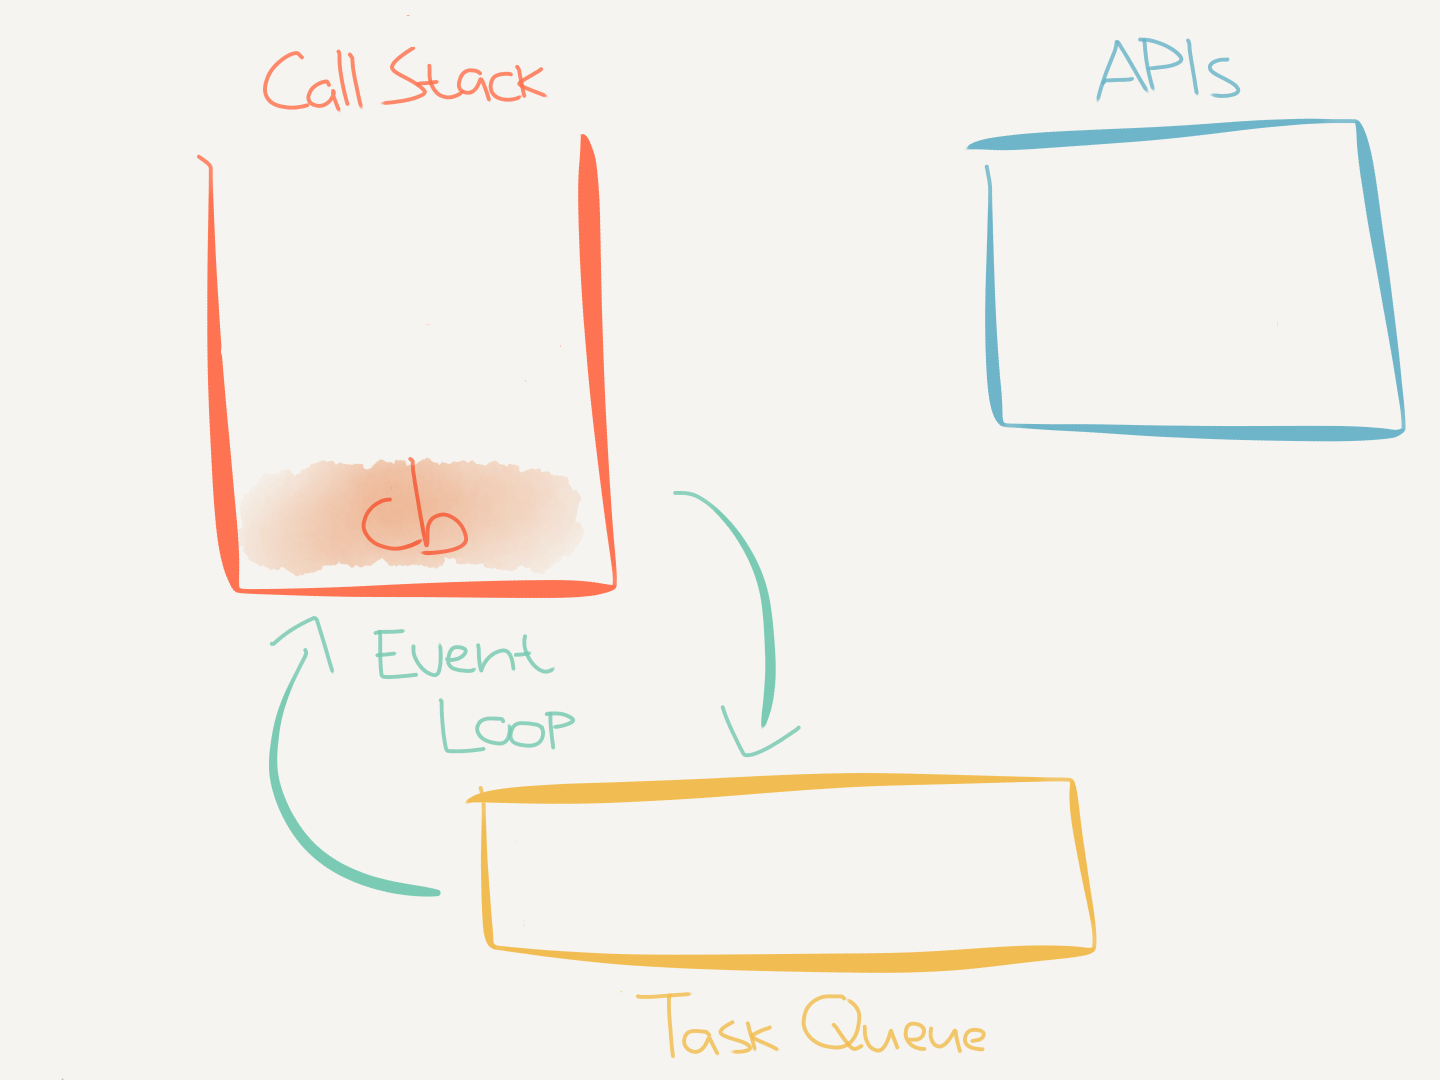 Call Stack
APIs
cb
Event
Loop
Task Queue